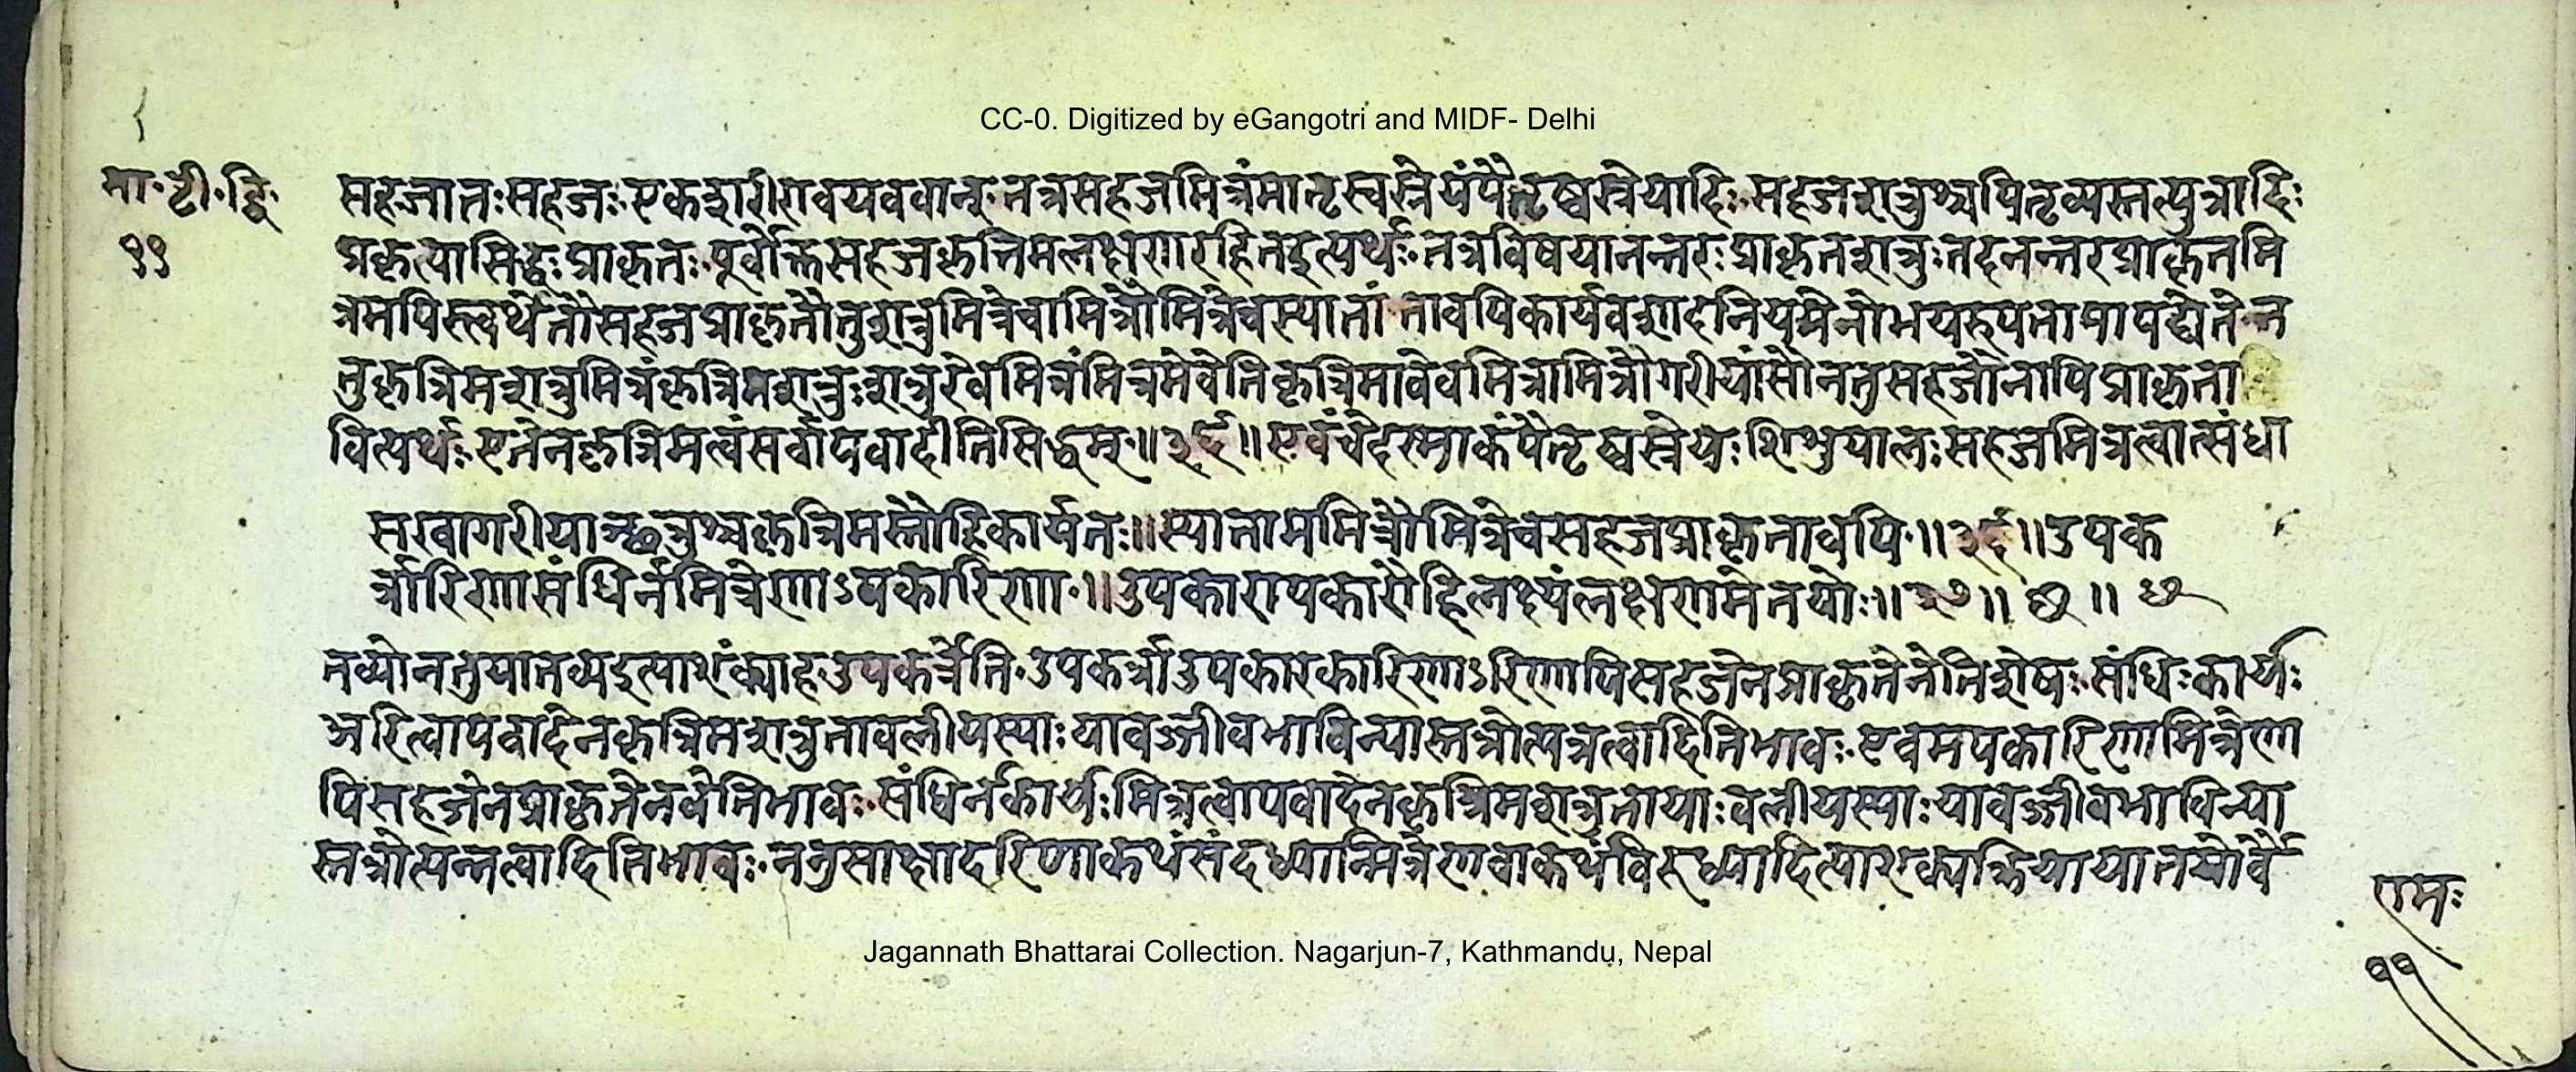 CC-0. Digitized by eGangotri and MIDF- Delhi
मा·टी·द्वि·
११
सहजातःसहजः·एकशरीरावयववान्·तत्रसहजमित्रंमातृस्वस्रेयंपैतृष्वस्रेयादि·सहजशत्रुश्चपितृव्यस्तत्पुत्रादिः
प्रकृत्यासिद्धःप्राकृतः·पूर्वोक्तसहजकृत्रिमलक्षणरहितइत्यर्थः·तत्रविषयानन्तरःप्राकृतशत्रुःतदनन्तरप्राकृतमि
त्रमपिस्त्वर्थेतौसहजप्राकृतौतुशत्रुमित्रेचामित्रौमित्रेचस्यातां·तावपिकार्यवशादनियमेनोभयरुपतामापद्येते·न
तुकृत्रिमशत्रुमित्रंकृत्रिमशत्रुःशत्रुरेवमित्रंमित्रमेवेतिकृत्रिमावेवमित्रामित्रौगरीयांसौनतुसहजौनापिप्राकृता
वित्यर्थः·एतेनकृत्रिमत्वंसर्वापवादीतिसिद्धम्·॥३६॥एवंचेहास्माकंपैतृष्वस्रेयःशिशुपालःसहजमित्रत्वात्संधा
सखागरीयान्छत्रुश्चकृत्रिमस्तौहिकार्यतः॥स्याताममित्रौमित्रेचसहजप्राकृतावपि·॥३६॥उपक
र्त्रारिणासंधिर्नमित्रेणाऽपकारिणा·॥उपकारापकारौहिलक्ष्यंलक्षणमेतयोः॥३७॥ छ ॥ छ
तव्योनतुयातव्यइत्याशंक्याहउपकर्त्रेति·उपकर्त्राउपकारकारिणाऽरिणापिसहजेनप्राकृतेनेतिशेषः·संधिःकार्यः
अरित्वापवादेनकृत्रिमशत्रुताबलीयस्याःयावज्जीवभाविन्यास्तत्रोत्पन्नत्वादितिभावः·एवमपकारिणामित्रेणा
पिसहजेनप्राकृतेनवेतिभावः·संधिर्नकार्यःमित्रत्वापवादेनकृत्रिमशत्रुतायाःबलीयस्याःयावज्जीवभाविन्या
स्तत्रोत्पन्नत्वादितिभावः·ननुसाक्षादरिणाकथंसंदध्यान्मित्रेणवाकथंविरुध्यादित्याशंक्यक्रियायातयोर्वै
रामः
११
Jagannath Bhattarai Collection. Nagarjun-7, Kathmandu, Nepal